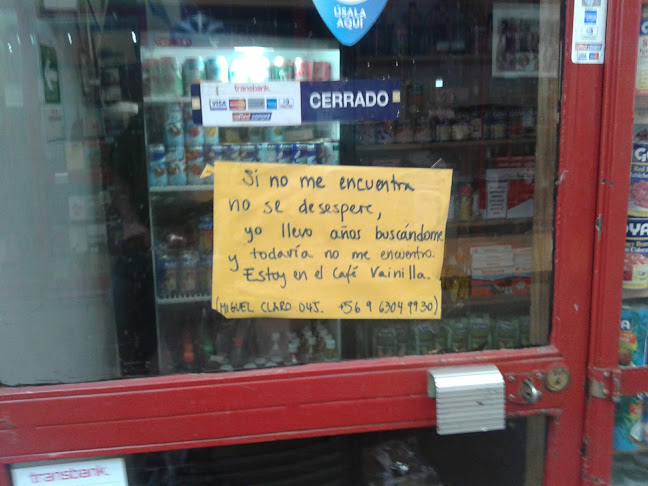 ÚSALA
AQUÍ
transbank.
VISA
CERRADO
Si no me encuentra
no se desespere,
yo llevo años buscándome
y todavía no me encuentro.
Estoy en el Café Vainilla.
(MIGUEL CLARO 045. +56 9 6304 9930)
transbank.
GOYA
GOYA